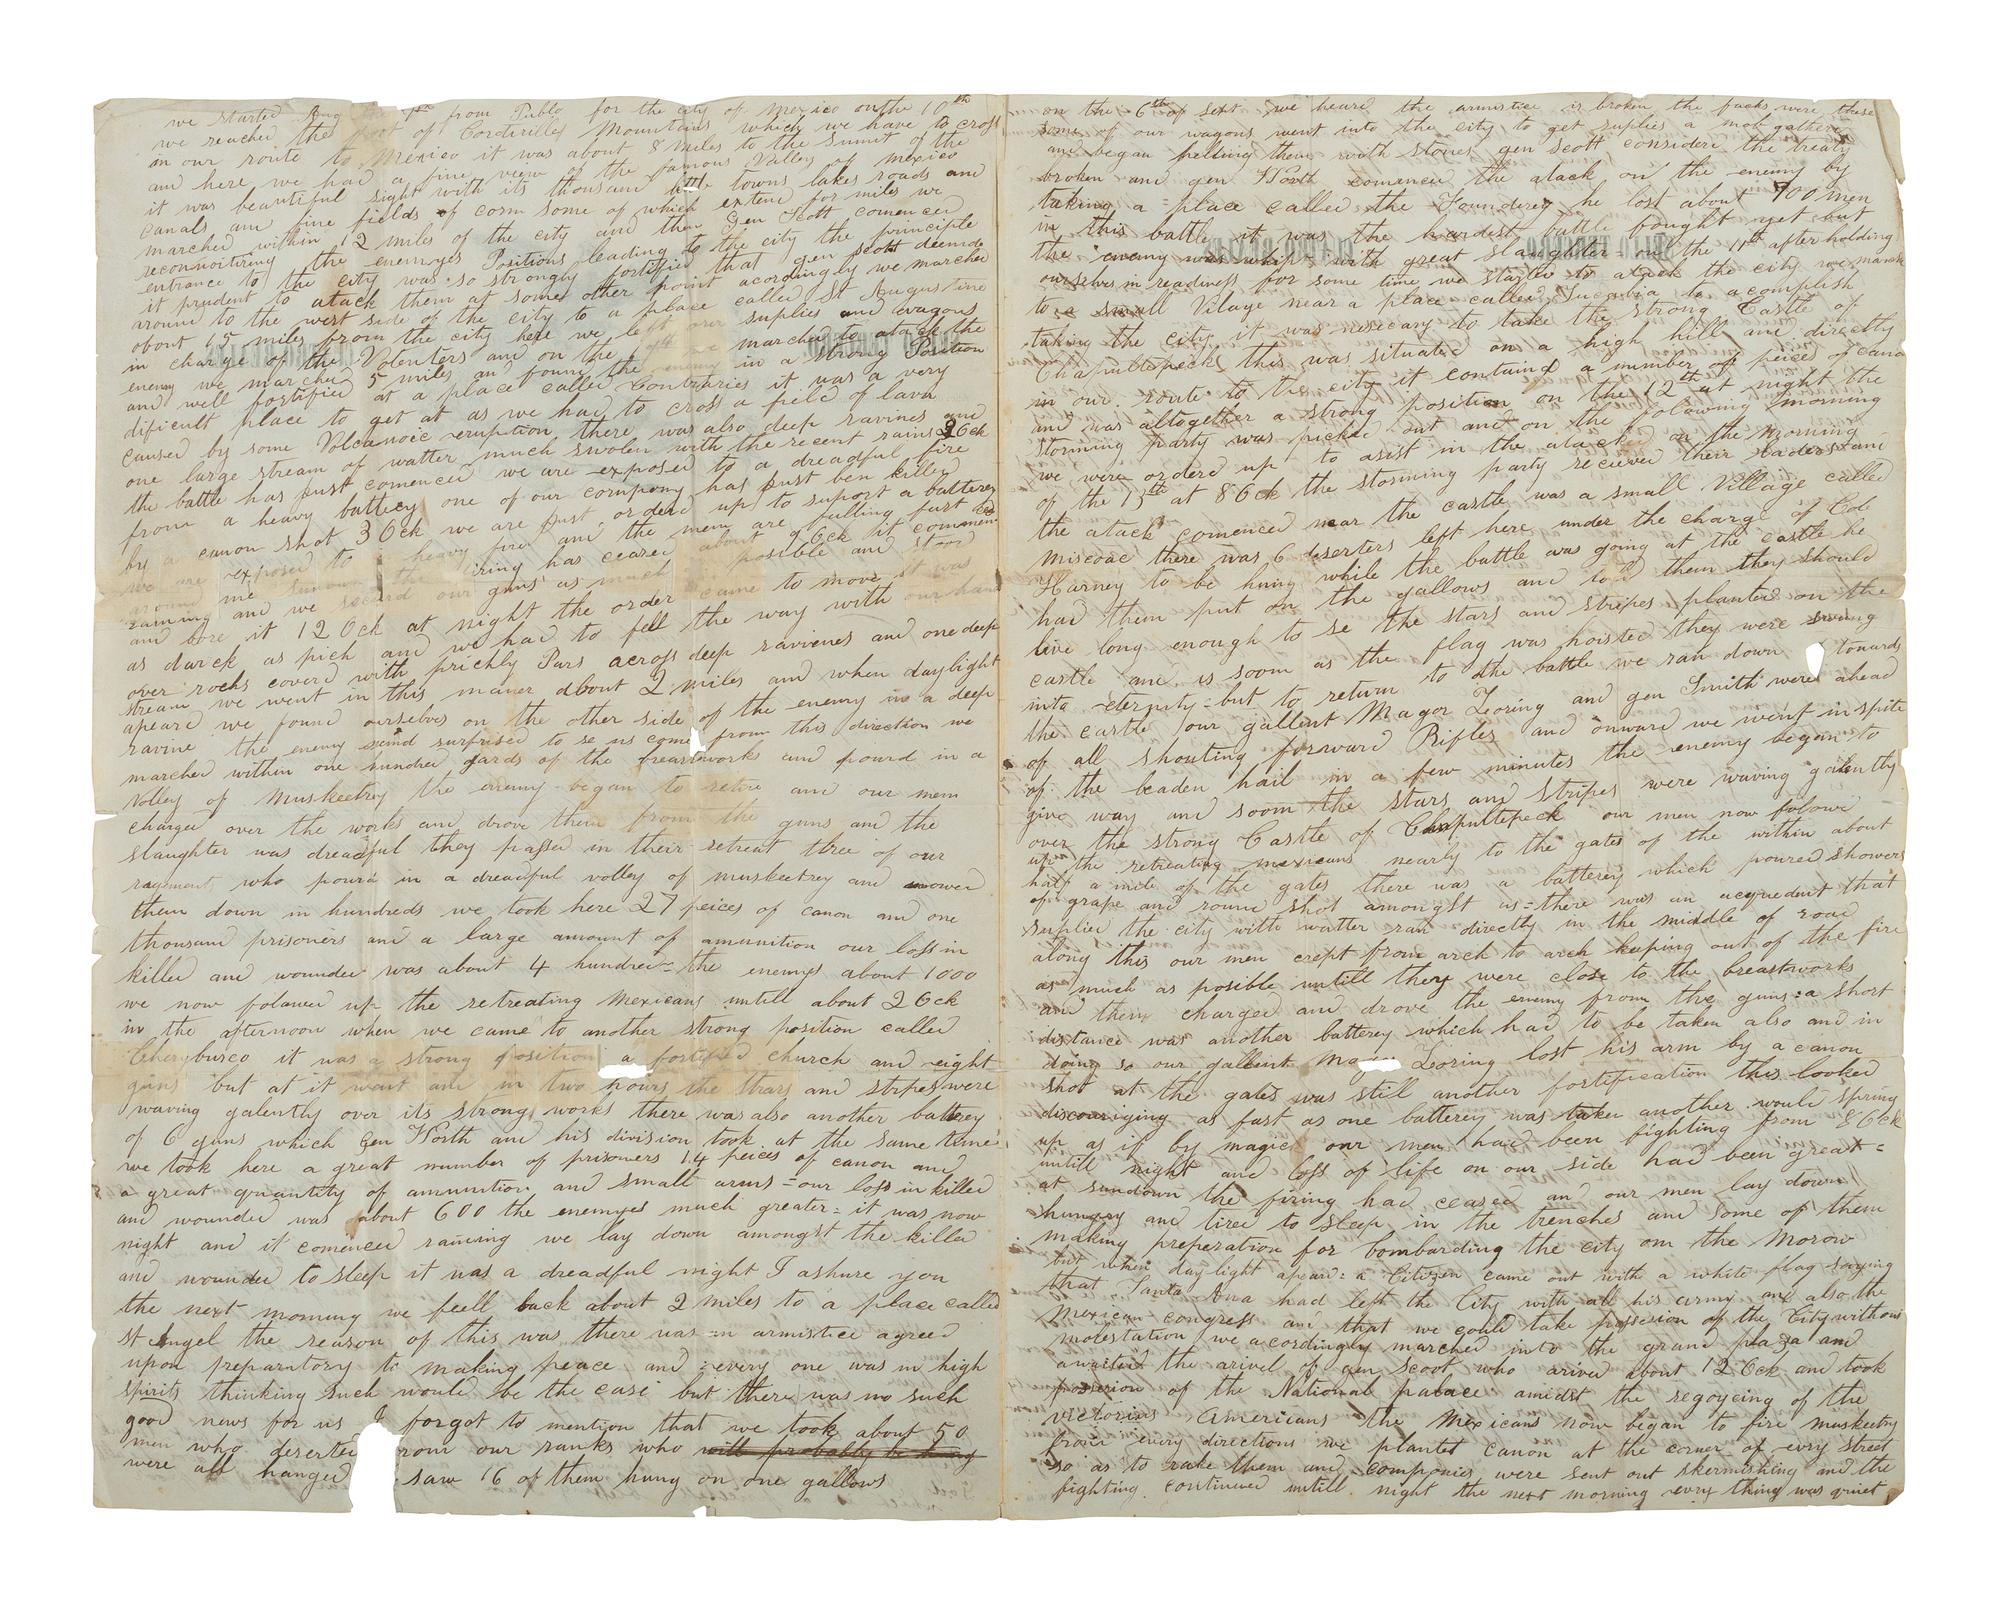 we started Aug from Publo for the city of Mexico on the 10th
we reached the foot of Cordirilles Mountains which we have to cross
on our route to Mexico it was about 8 miles to the sumit of the
and here we had a fine view of the famous Valley of mexico
it was beautiful sight with its thousand little towns lakes roads and
canals and fine fields of corn some of which extend for miles we
marched within 12 miles of the city and then Gen Scott comenced
reconnoitiring the enemyes Positions leading to the city the principle
entrance to the city was so strongly fortified that gen scott deemde
it prudent to atack them at some other point acordingly we marched
around to the west side of the city to a place called St Augustine
about 15 miles from the city here we left our supplies and wagons
in charge of the Volenters and on the we marched to atack the
enemy we marched 5 miles and found the enemy in a strong Position
and well fortified at a place called Contraries it was a very
dificult place to get at as we had to cross a feild of lava
caused by some Volcanoic eruption there was also deep ravines and
one large stream of watter much swolen with the recent rains 2 Ock
the battle has just comenced we are exposed to a dreadful fire
from a heavy battery one of our company has just ben killed
by a canon shot 3 Ock we are just orderd up to suport a batterey
we are exposed to heavy fire and the men are falling fast
around me the firing has ceased about 9 Ock it commen
raining and we secured our guns as much possible and stood
and bore it 12 Ock at night the order came to move it was
as darck as pich and we had to fell the way with our hand
over rocks coverd with prickly Pars across deep ravienes and one deep
stream we went in this maner about 2 miles and when daylight
apeard we found ourselves on the other side of the enemy in a deep
ravine the enemy surprised to se us come from this direction we
marched within one hundred yards of the breastworks and pourd in a
Volley of Muskeetrey the enemy began to retire and our men
charged over the works and drove them from the guns and the
slaughter was dreadful they passed in their retreat three of our
regments who pourd in a dreadful volley of muskeetrey and mowed
them down in hundreds we took here 27 peices of canon and one
thousand prisoners and a large amount of amunition our loss in
killed and wounded was about 4 hundred = the enemys about 1000
we now folowed up the retreating Mexicans untill about 2 Ock
in the afternoon when we came to another strong position called
Cherybusco it was a strong position a fortified church and eight
guns but at it went and in two hours the Stars and stripes were
waving galently over its strong works there was also another battrey
of 6 guns which Gen Worth and his division took at the same time
we took here a great number of prisoners 14 peices of canon and
a great quantity of amunition and small arms = our loss in killed
and wounded was about 600 the enemyes much greater = it was now
night and it comenced raining we lay down amongst the killed
and wounded to sleep it was a dreadful night I ashure you
the next morning we feell back about 2 miles to a place called
st Angel the reason of this was there was an armistice agreed
upon preparatory to making peace and every one was in high
spirits thinking such would be the case but there was no such
good news for us I forgot to mention that we took about 50
men who deserted from our ranks who will probably be hung
were all hanged saw 16 of them hung on one gallows
on the 6th of sept we heard the armistice is broken the facks were these
some of our wagons went into the city to get suplies a mob gathered
and began pelting them with stones gen Scott considerd the treaty
broken and gen Worth comenced the atack on the enemy by
taking a place called the Founderey he lost about 700 men
in this battle it was the hardest battle fought yet but
the enemy was whipt with great slaughter = on the 11th after holding
ourselves in readiness for some time we started to atack the city we marchd
to a small Village near a place called Tucabia to acomplish
taking the city it was nesecary to take the strong Castle of
Chapultepeck this was situated on a high hill and directly
in our route to the city it containd a number of peices of canon
and was altogether a strong position on the 12th at night the
storming party was picked out and on the folowing morning
we were orderd up to asist in the atack on the morning
of the 13th at 8 Ock the storming party recieved their laders and
the atack comenced near the castle was a small Village called
Miscoac there was 6 deserters left here under the charge of Col
Harney to be hung while the battle was going at the castle he
had them put on the gallows and told them they should
live long enough to se the stars and stripes planted on the
castle and as soom as the flag was hoisted they were swung
into eternity = but to return to the battle we ran down towards
the castle our gallent Magor Loring and gen Smith were ahead
of all shouting forward Rifles and onward we went in spite
of the leaden hail in a few minutes the enemy began to
give way and soom the stars and stripes were waving galently
over the strong Castle of Chapultepeck our men now folowed
up the retreating mexicans nearly to the gates of the within about
half a mile of the gates there was a batterey which poured showers
of grape and round shot amongst us = there was an acquedent that
suplied the city with watter ran directly in the middle of road
along this our men crept from arch to arch keeping out of the fire
as much as posible untill they were close to the breastworks
and then charged and drove the enemy from the guns = a short
distance was another batterey which had to be taken also and in
doing so our gallent Loring lost his arm by a canon
shot at the gates was still another fortification this looked
discouriging as fast as one batterey was taken another would spring
up as if by magic our men had been fighting from 8 Ock
untill night and loss of life on our side had been great =
at sundown the firing had ceased and our men lay down
hungrey and tired to sleep in the trenches and some of them
making preperation for bombarding the city on the Morow
but when day light apeard = a Citizen came out with a white flag saying
that Santa Ana had left the City with all his army and also the
Mexican congress and that we could take possesion of the City without
molestation we acordingly marched into the grand plaza and
awaited the arivel of gen Scoot who arived about 12 Ock and took
possesion of the National palace amidst the regoycing of the
victorius Americans the Mexicans now began to fire muskeetry
from every directions we planted canon at the corner of evry street
so as to rake them and companies were sent out skermishing and the
fighting continued untill night the next morning evry thing was quiet